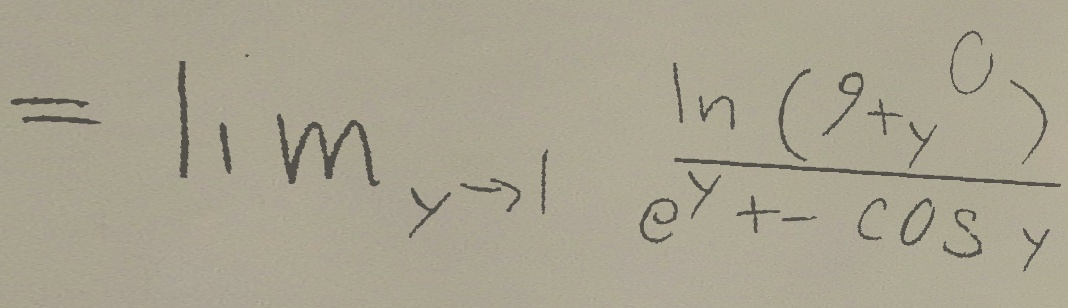 = lim_{y→1} \frac{ln(9+y^0)}{e^y+-cos y}